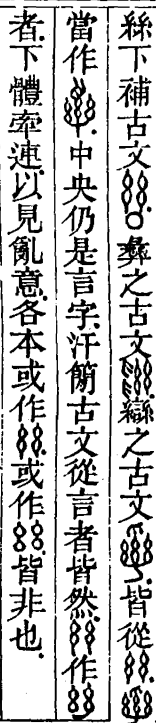 絲下補古文○彝之古文䜌之古文皆從
當作中央仍是言字汗簡古文從言者皆然作
者下體牽連以見亂意各本或作或作皆非也